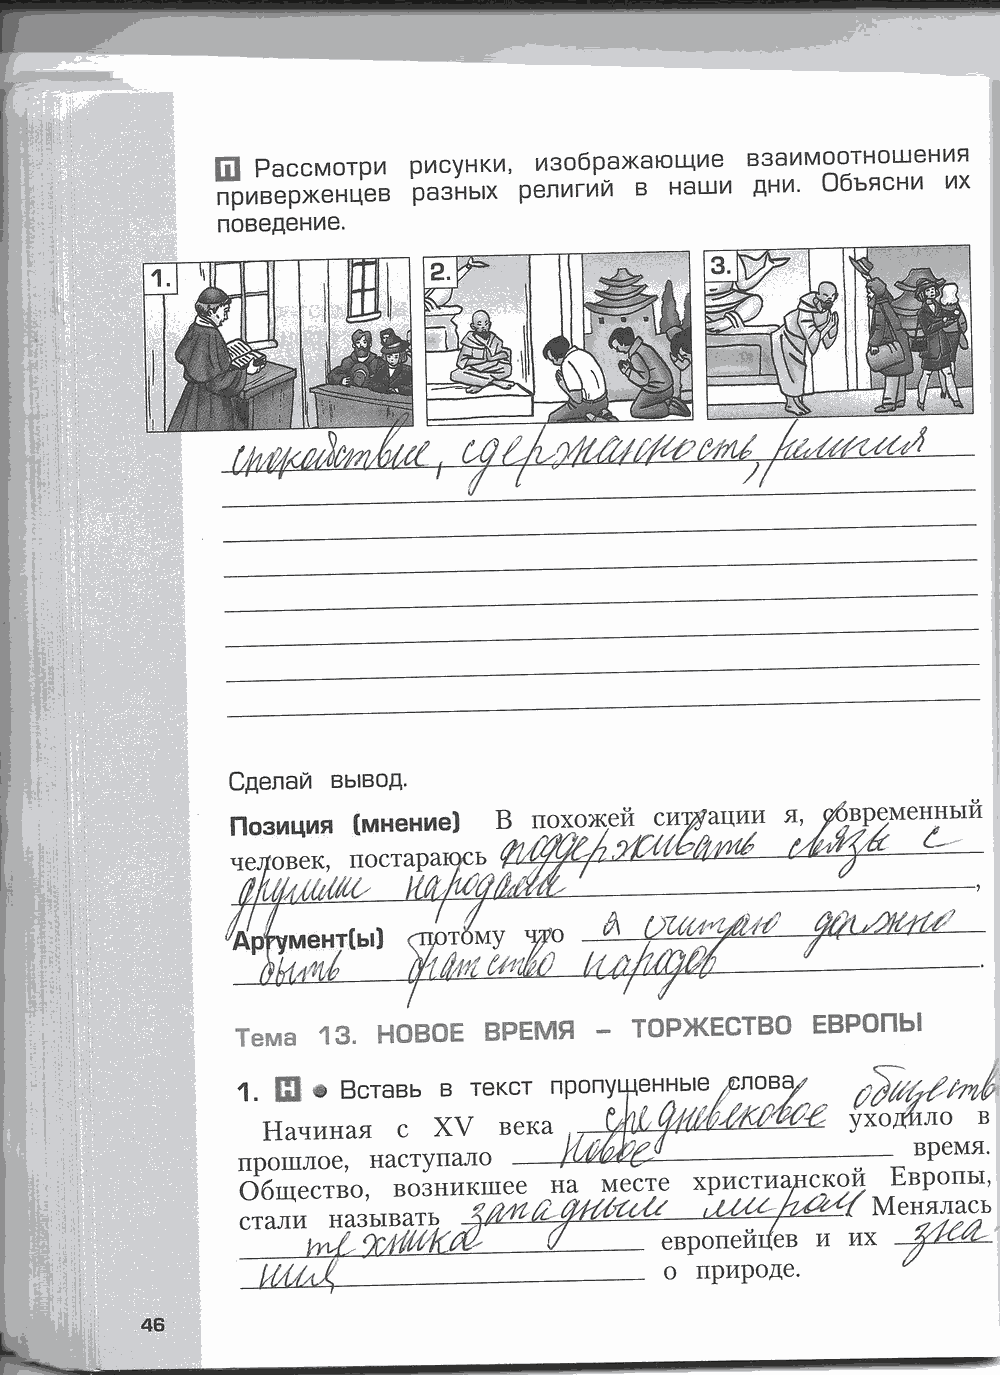 П Рассмотри рисунки, изображающие взаимоотношения
приверженцев разных религий в наши дни. Объясни их
поведение.
1. 2. 3.
спокойствие, сдержанность, религия
Сделай вывод.
Позиция (мнение) В похожей ситуации я, современный
человек, постараюсь поддерживать связь с
другими народами,
Аргумент(ы) потому что я считаю должно
быть братство народов.
Тема 13. НОВОЕ ВРЕМЯ – ТОРЖЕСТВО ЕВРОПЫ
1. Н • Вставь в текст пропущенные слова.
Начиная с XV века средневековое обществ уходило в
прошлое, наступало Новое время.
Общество, возникшее на месте христианской Европы,
стали называть западным миром. Менялась
техника европейцев и их зна-
ния о природе.
46